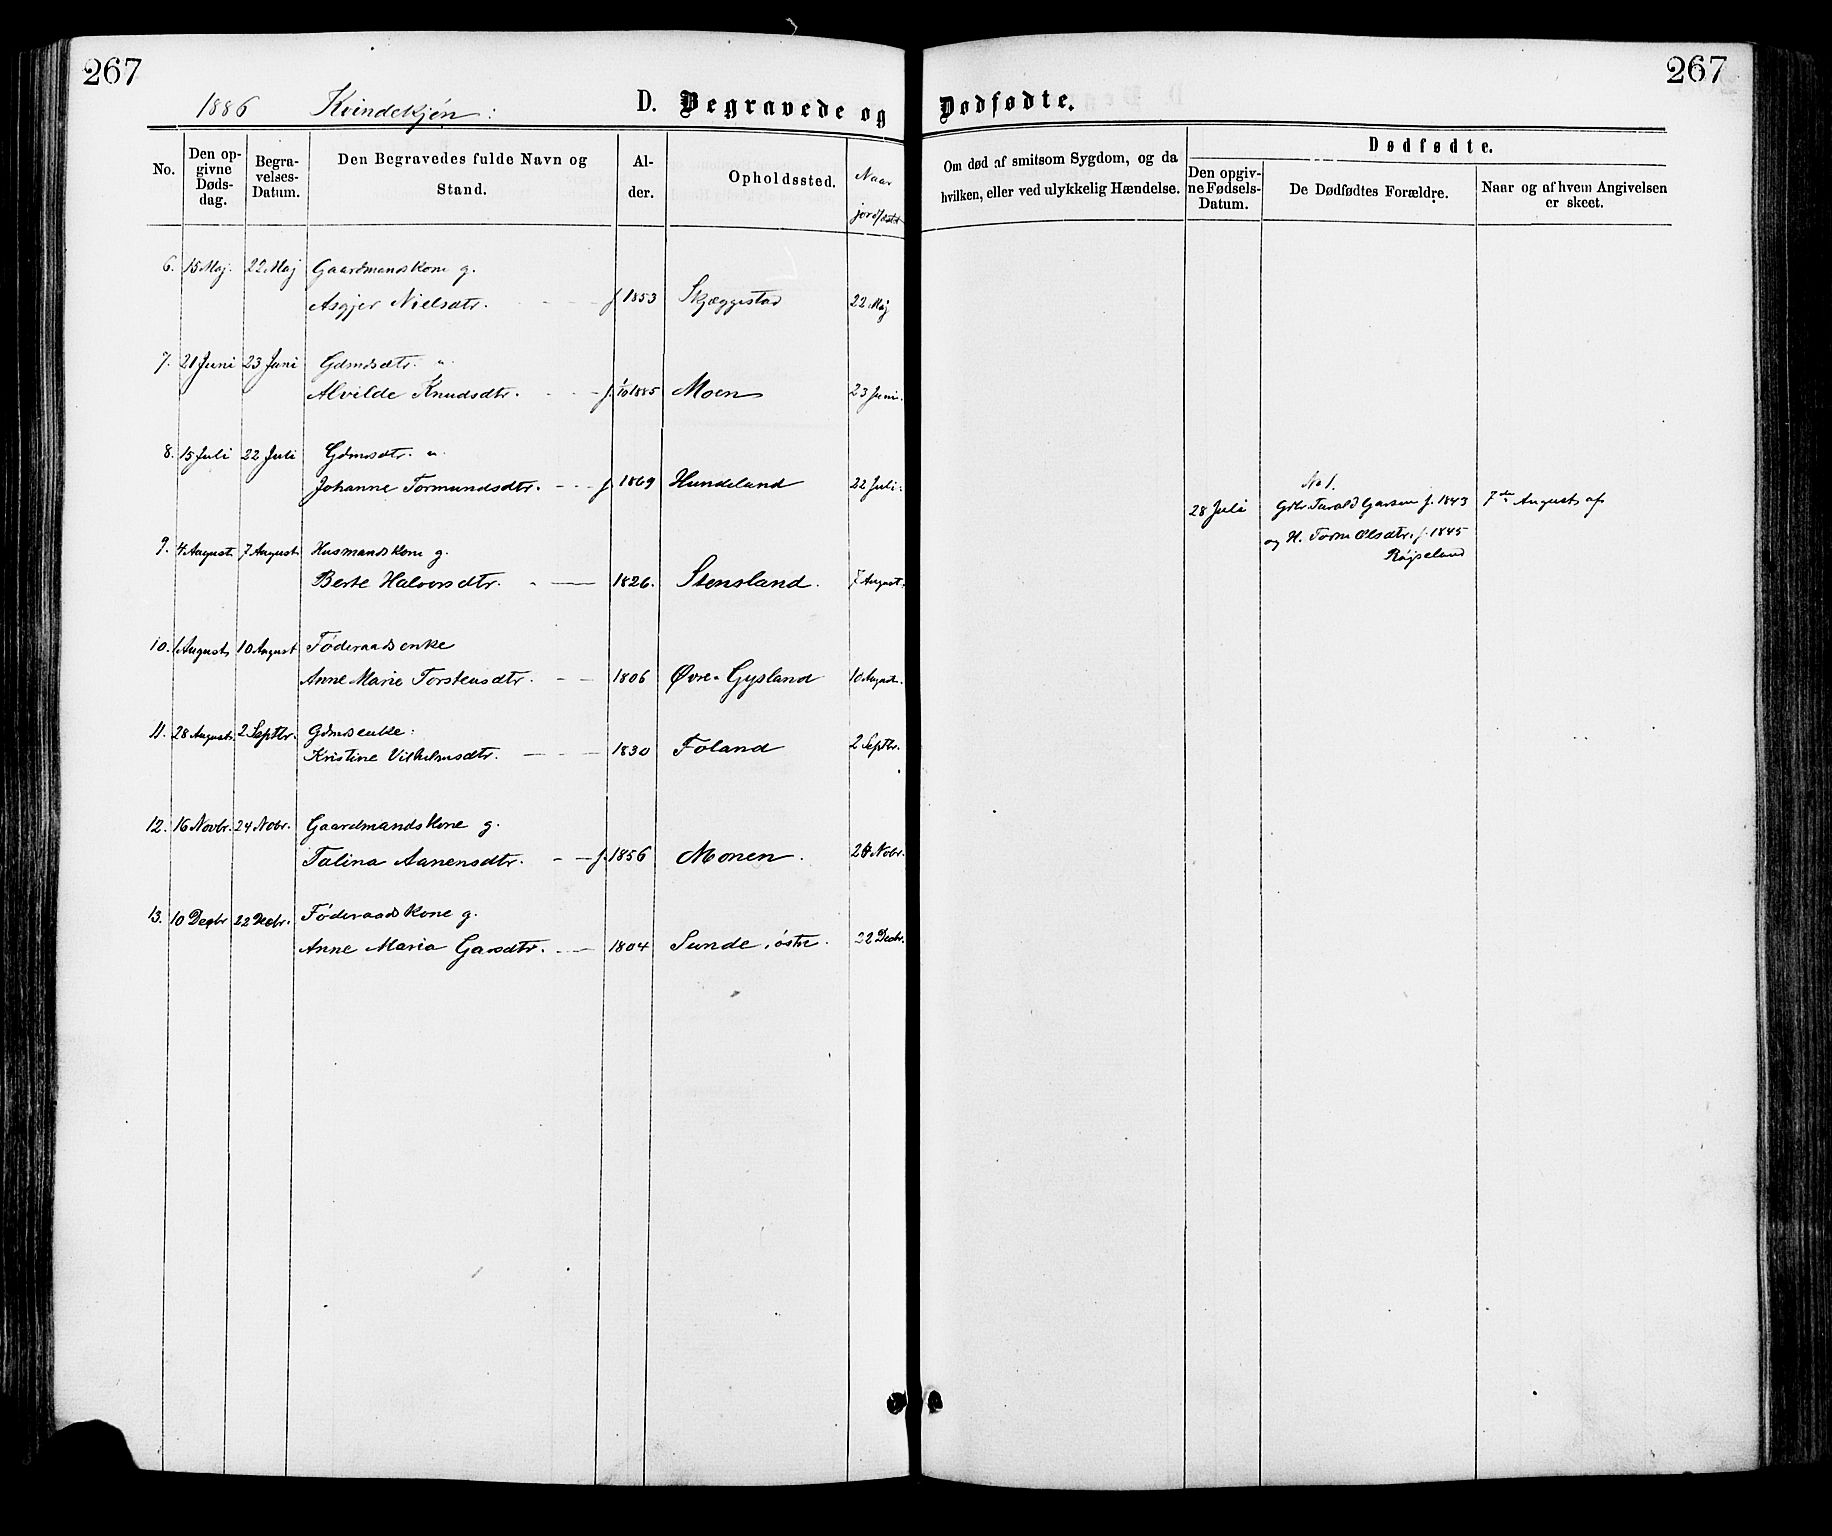 267
267
1886 Kvindekjøn:
D. Begravede og Dødfødte.
No.
Den opgivne Dødsdag.
Begravelses-Datum.
Den Begravedes fulde Navn og Stand.
Alder.
Opholdssted.
Naar jordfæstet
Om død af smitsom Sygdom, og da hvilken, eller ved ulykkelig Hændelse.
Dødfødte.
Den opgivne Fødsels-Datum.
De Dødfødtes Forældre.
Naar og af hvem Angivelsen er skeet.
6. 15 Maj. 22 Maj Gaardmandskone g.
Asgjer Nielsdtr. f. 1853 Skjæggestad 22 Maj
7. 21 Juni 23 Juni Gdmdsdtr. u.
Alvilde Knudsdtr. f. 1/10 1885 Moen 23 Juni.
8. 15 Juli 22 Juli Gdmdsdtr. u.
Johanne Tormundsdtr. f. 1869 Hundeland 22 Juli.
No 1.
28 Juli Gbr. Tarald Garsen f. 1843 7de August af
og H. Torine Olsdtr. f. 1845
Røjseland
9. 4 August 7 August Husmandskone g.
Berte Halvorsdtr. 1826. Stensland. 7 August.
10. 1 August 10 August Føderaadsenke
Anne Marie Torstensdtr. 1806 Øvre-Gysland 10 August.
11. 28 August 2 Septbr. Gdmdsenke:
Kristine Vilhelmsdtr. 1830 Foland 2 Septbr.
12. 16 Novbr. 24 Nobr. Gaardmandskone g.
Talina Aanensdtr. f. 1856 Monen. 24 Nobr.
13. 10 Decbr 22 Decbr. Føderaadskone g.
Anne Maria Garsdtr. 1804 Sunde, østre. 22 Decbr.